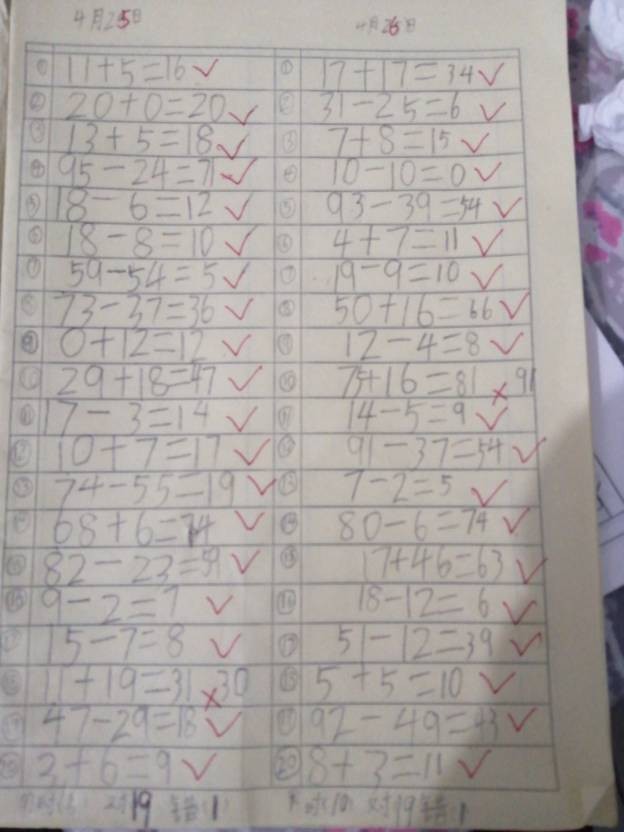 4月25日
4月26日
① 11+5=16 ✓
② 20+0=20 ✓
③ 13+5=18 ✓
④ 95-24=71 ✓
⑤ 18-6=12 ✓
⑥ 18-8=10 ✓
⑦ 59-54=5 ✓
⑧ 73-37=36 ✓
⑨ 0+12=12 ✓
⑩ 29+18=47 ✓
⑪ 17-3=14 ✓
⑫ 10+7=17 ✓
⑬ 74-55=19 ✓
⑭ 68+6=74 ✓
⑮ 82-23=59 ✓
⑯ 9-2=7 ✓
⑰ 15-7=8 ✓
⑱ 11+19=31 × 30
⑲ 47-29=18 ✓
⑳ 3+6=9 ✓
对19 错:1
① 17+17=34 ✓
② 31-25=6 ✓
③ 7+8=15 ✓
④ 10-10=0 ✓
⑤ 93-39=54 ✓
⑥ 4+7=11 ✓
⑦ 19-9=10 ✓
⑧ 50+16=66 ✓
⑨ 12-4=8 ✓
⑩ 75+16=81 × 91
⑪ 14-5=9 ✓
⑫ 91-37=54 ✓
⑬ 7-2=5 ✓
⑭ 80-6=74 ✓
⑮ 17+46=63 ✓
⑯ 18-12=6 ✓
⑰ 51-12=39 ✓
⑱ 5+5=10 ✓
⑲ 92-49=43 ✓
⑳ 8+3=11 ✓
对19错:1